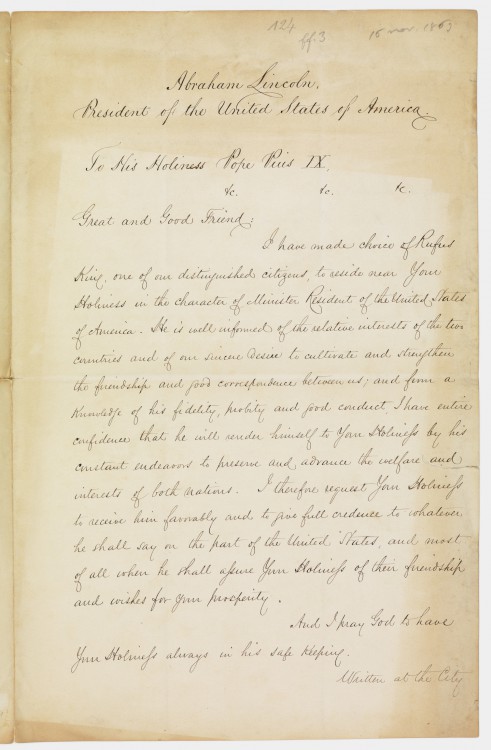 124
ff. 3
15 nov. 1863
Abraham Lincoln,
President of the United States of America.
To His Holiness Pope Pius IX,
&c. &c. &c.
Great and Good Friend:
I have made choice of Rufus
King, one of our distinguished citizens, to reside near Your
Holiness in the character of Minister Resident of the United States
of America. He is well informed of the relative interests of the two
countries and of our sincere desire to cultivate and strengthen
the friendship and good correspondence between us; and from a
knowledge of his fidelity, probity and good conduct, I have entire
confidence that he will render himself to Your Holiness by his
constant endeavors to preserve and advance the welfare and
interests of both nations. I therefore request Your Holiness
to receive him favorably and to give full credence to whatever
he shall say on the part of the United States, and most
of all when he shall assure Your Holiness of their friendship
and wishes for your prosperity.
And I pray God to have
Your Holiness always in his safe keeping.
Written at the City